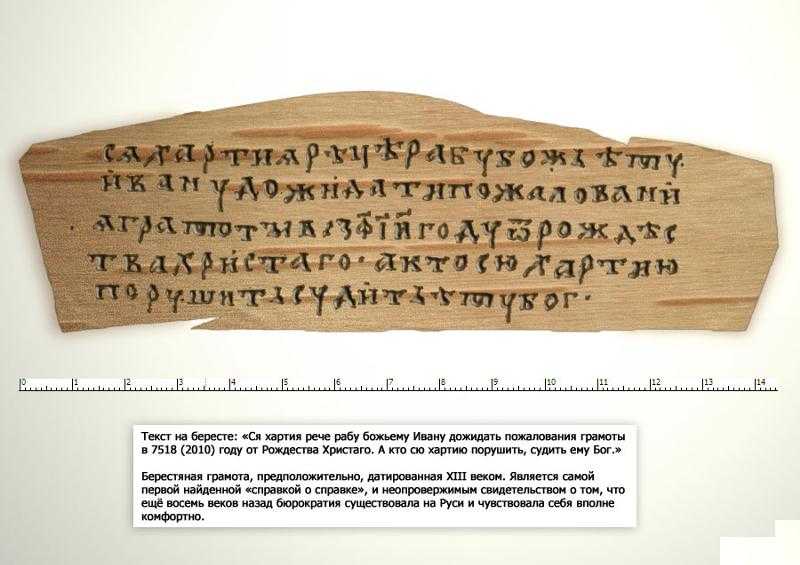 сѧхартиѧрѣчѣрабубожьѣму
ивануdожидатипожаловани
ѧграмотꙑв҂зф҃і҃и҃годуѿрождѣс
твахристаго·актосюхартию
порушитьсудитьѣмубог·
0 1 2 3 4 5 6 7 8 9 10 11 12 13 14
Текст на бересте: «Ся хартия рече рабу божьему Ивану дожидать пожалования грамоты
в 7518 (2010) году от Рождества Христаго. А кто сю хартию порушить, судить ему Бог.»
Берестяная грамота, предположительно, датированная XIII веком. Является самой
первой найденной «справкой о справке», и неопровержимым свидетельством о том, что
ещё восемь веков назад бюрократия существовала на Руси и чувствовала себя вполне
комфортно.